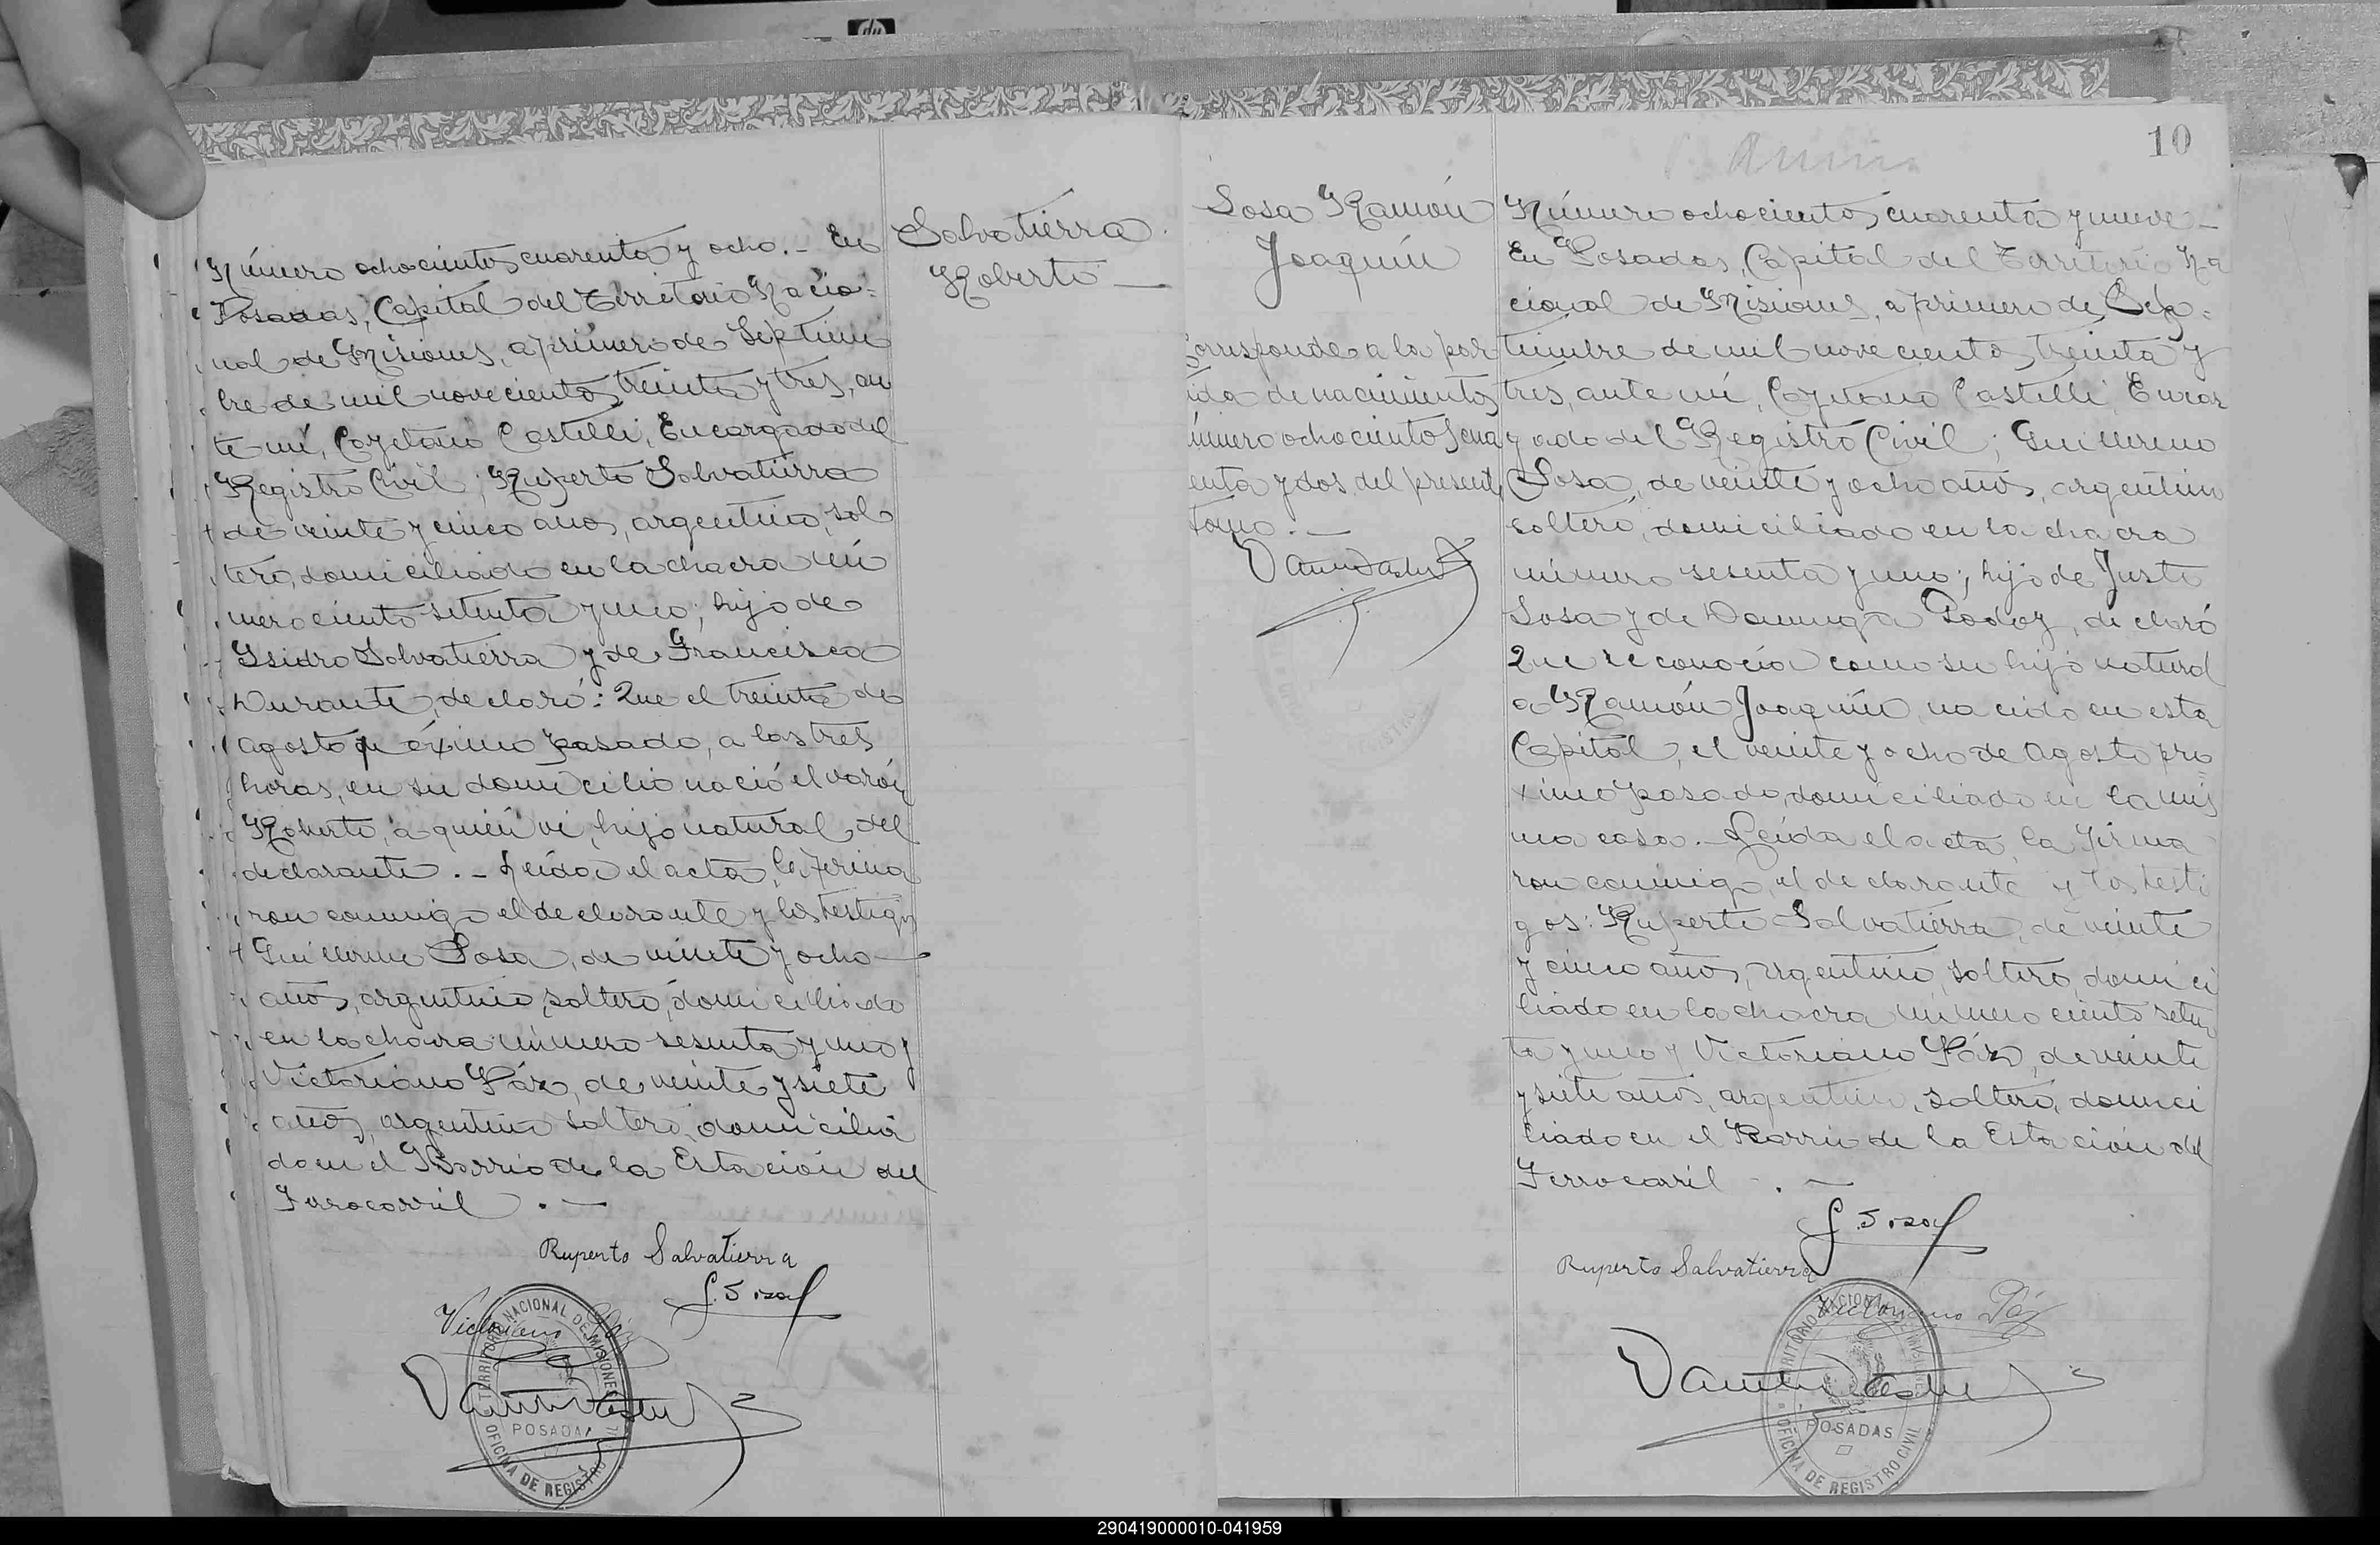 Número ochocientos cuarenta y ocho.- En
Posadas, Capital del Territorio Nacio=
nal de Misiones, a primero de Septiem
bre de mil novecientos treinta y tres, an
te mí, Cayetano Castelli, Encargado del
Registro Civil; Ruperto Salvatierra
de veinte y cinco años, argentino, sol
tero, domiciliado en la chacra nú
mero ciento setenta y uno; hijo de
Isidro Salvatierra y de Francisca
Durante, declaró: Que el treinta de
Agosto próximo pasado, a las tres
horas, en su domicilio nació el varón
Roberto, a quién vi, hijo natural del
declarante.- Leída el acta, la firma
ron conmigo el declarante y los testigos
Guillermo Sosa, de veinte y ocho
años, argentino, soltero, domiciliado
en la chacra número sesenta y uno y
Victoriano Páz, de veinte y siete
años, argentino soltero, domicilia
do en el Barrio de la Estación del
Ferrocarril .-
Ruperto Salvatierra
G. Sosa
Victoriano Páz
TERRITORIO NACIONAL DE MISIONES
POSADAS
OFICINA DE REGISTRO
Salvatierra
Roberto
10
Sosa Ramón
Joaquín
Corresponde a la par
tida de nacimientos
número ochocientos cua
renta y dos del presente
tomo.-
Número ochocientos cuarenta y nueve-
En Posadas, Capital del Territorio Na
cional de Misiones, a primero de Sep=
tiembre de mil novecientos treinta y
tres, ante mí, Cayetano Castelli Encar
gado del Registro Civil; Guillermo
Sosa, de veinte y ocho años, argentino
soltero, domiciliado en la chacra
número sesenta y uno; hijo de Justo
Sosa y de Dominga Godoy, declaró
Que reconocía como su hijo natural
a Ramón Joaquín, nacido en esta
Capital, el veinte y ocho de Agosto pró
ximo pasado, domiciliado en la mis
ma casa.- Leída el acta, la firma
ron conmigo, el declarante y los testi
gos: Ruperto Salvatierra, de veinte
y cinco años, argentino, soltero, domici
liado en la chacra número ciento seten
ta y uno y Victoriano Páz, de veinte
y siete años, argentino, soltero, domici
liado en el Barrio de la Estación del
Ferrocarril .-
G. Sosa
Ruperto Salvatierra
Victoriano Páz
POSADAS
OFICINA DE REGISTRO CIVIL
290419000010-041959